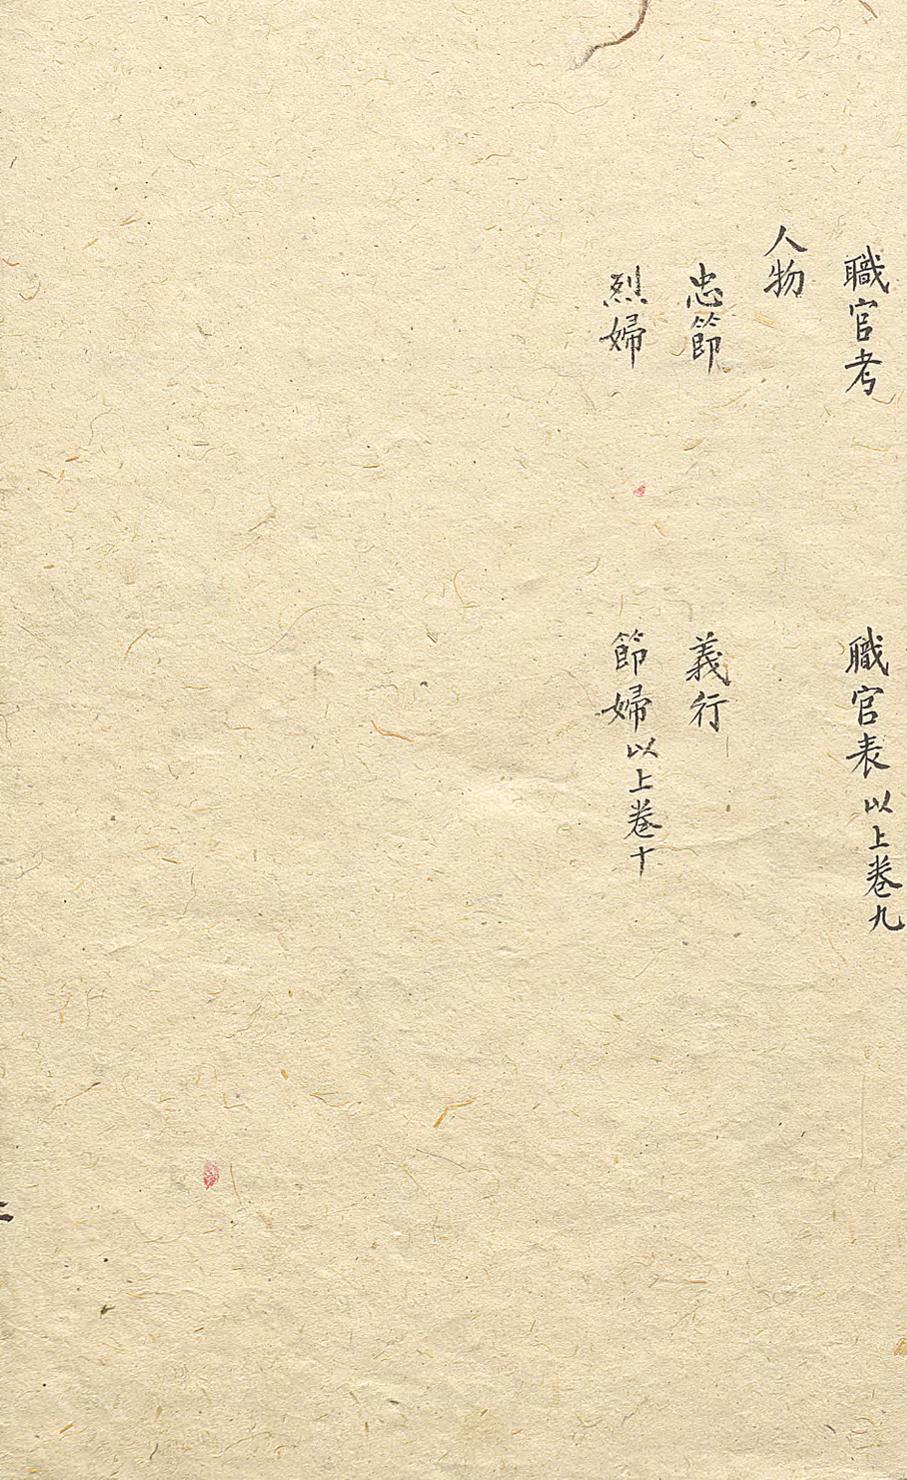 職官考 職官表以上卷九
人物
忠節 義行
烈婦 節婦以上卷十